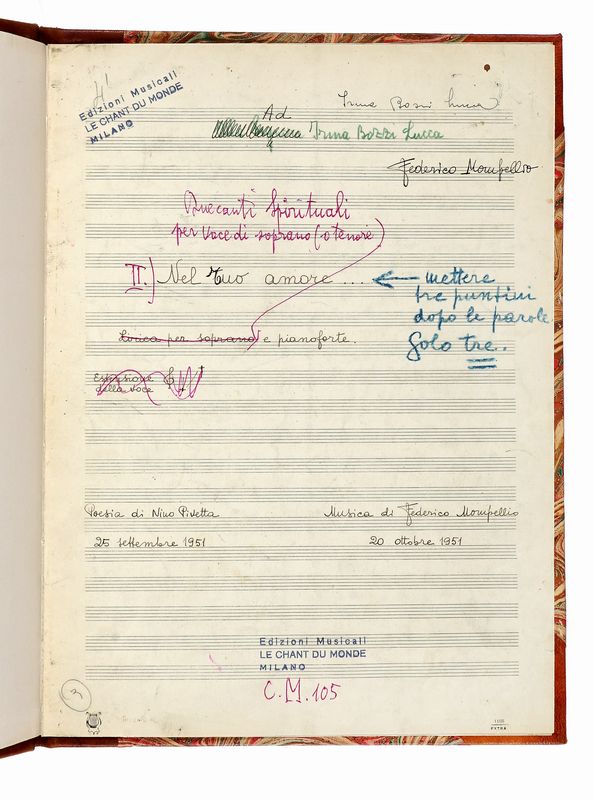 Edizioni Musicali
LE CHANT DU MONDE
MILANO
Ad
Irma Bozzi Lucca
Irma Bozzi Lucca
Federico Mompellio
Due canti Spirituali
per voce di soprano (o tenore)
II.) Nel Tuo amore ...
← mettere
tre puntini
dopo le parole
Solo tre.
Lirica per soprano e pianoforte.
Estensione
della voce
Poesia di Nino Pivetta
Musica di Federico Mompellio
25 settembre 1951
20 ottobre 1951
Edizioni Musicali
LE CHANT DU MONDE
MILANO
C.M. 105
3
EXTRA